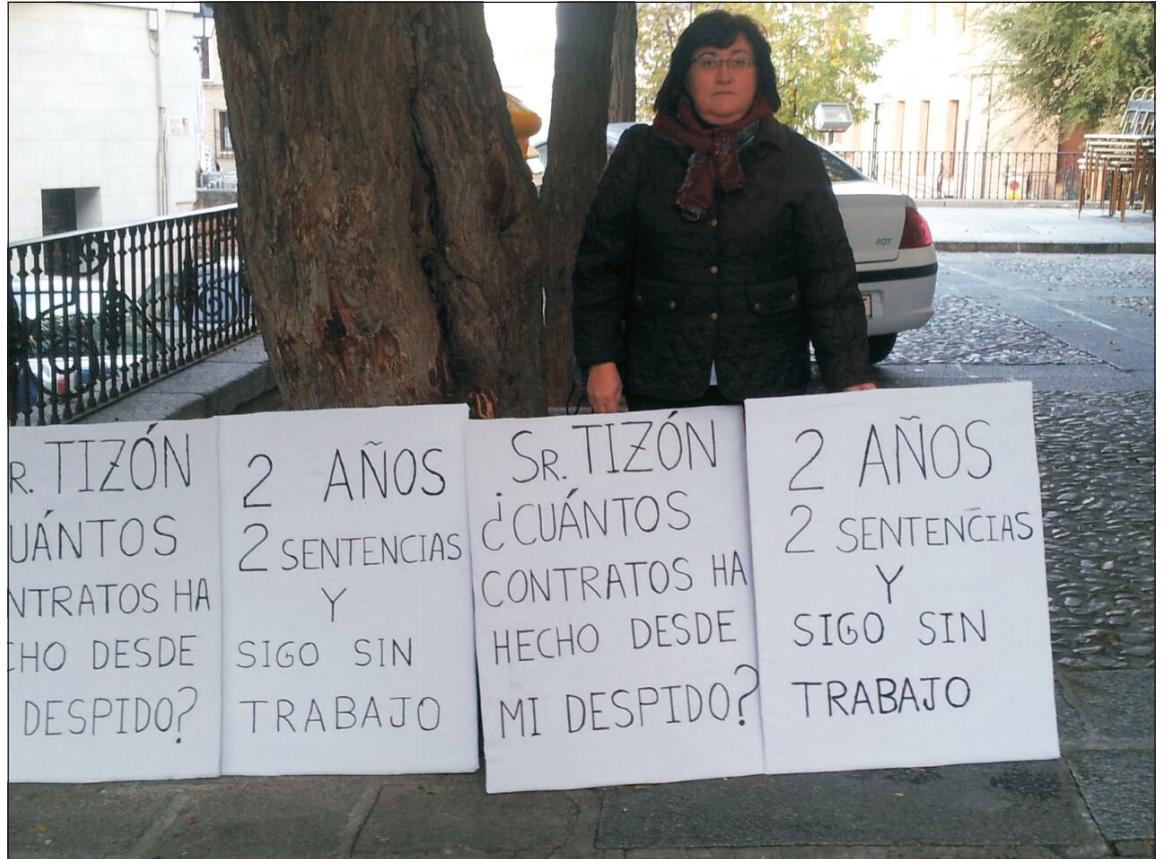 R. TIZÓN
UÁNTOS
NTRATOS HA
CHO DESDE
DESPIDO?
2 AÑOS
2 SENTENCIAS
Y
SIGO SIN
TRABAJO
SR. TIZÓN
¿CUÁNTOS
CONTRATOS HA
HECHO DESDE
MI DESPIDO?
2 AÑOS
2 SENTENCIAS
Y
SIGO SIN
TRABAJO
407